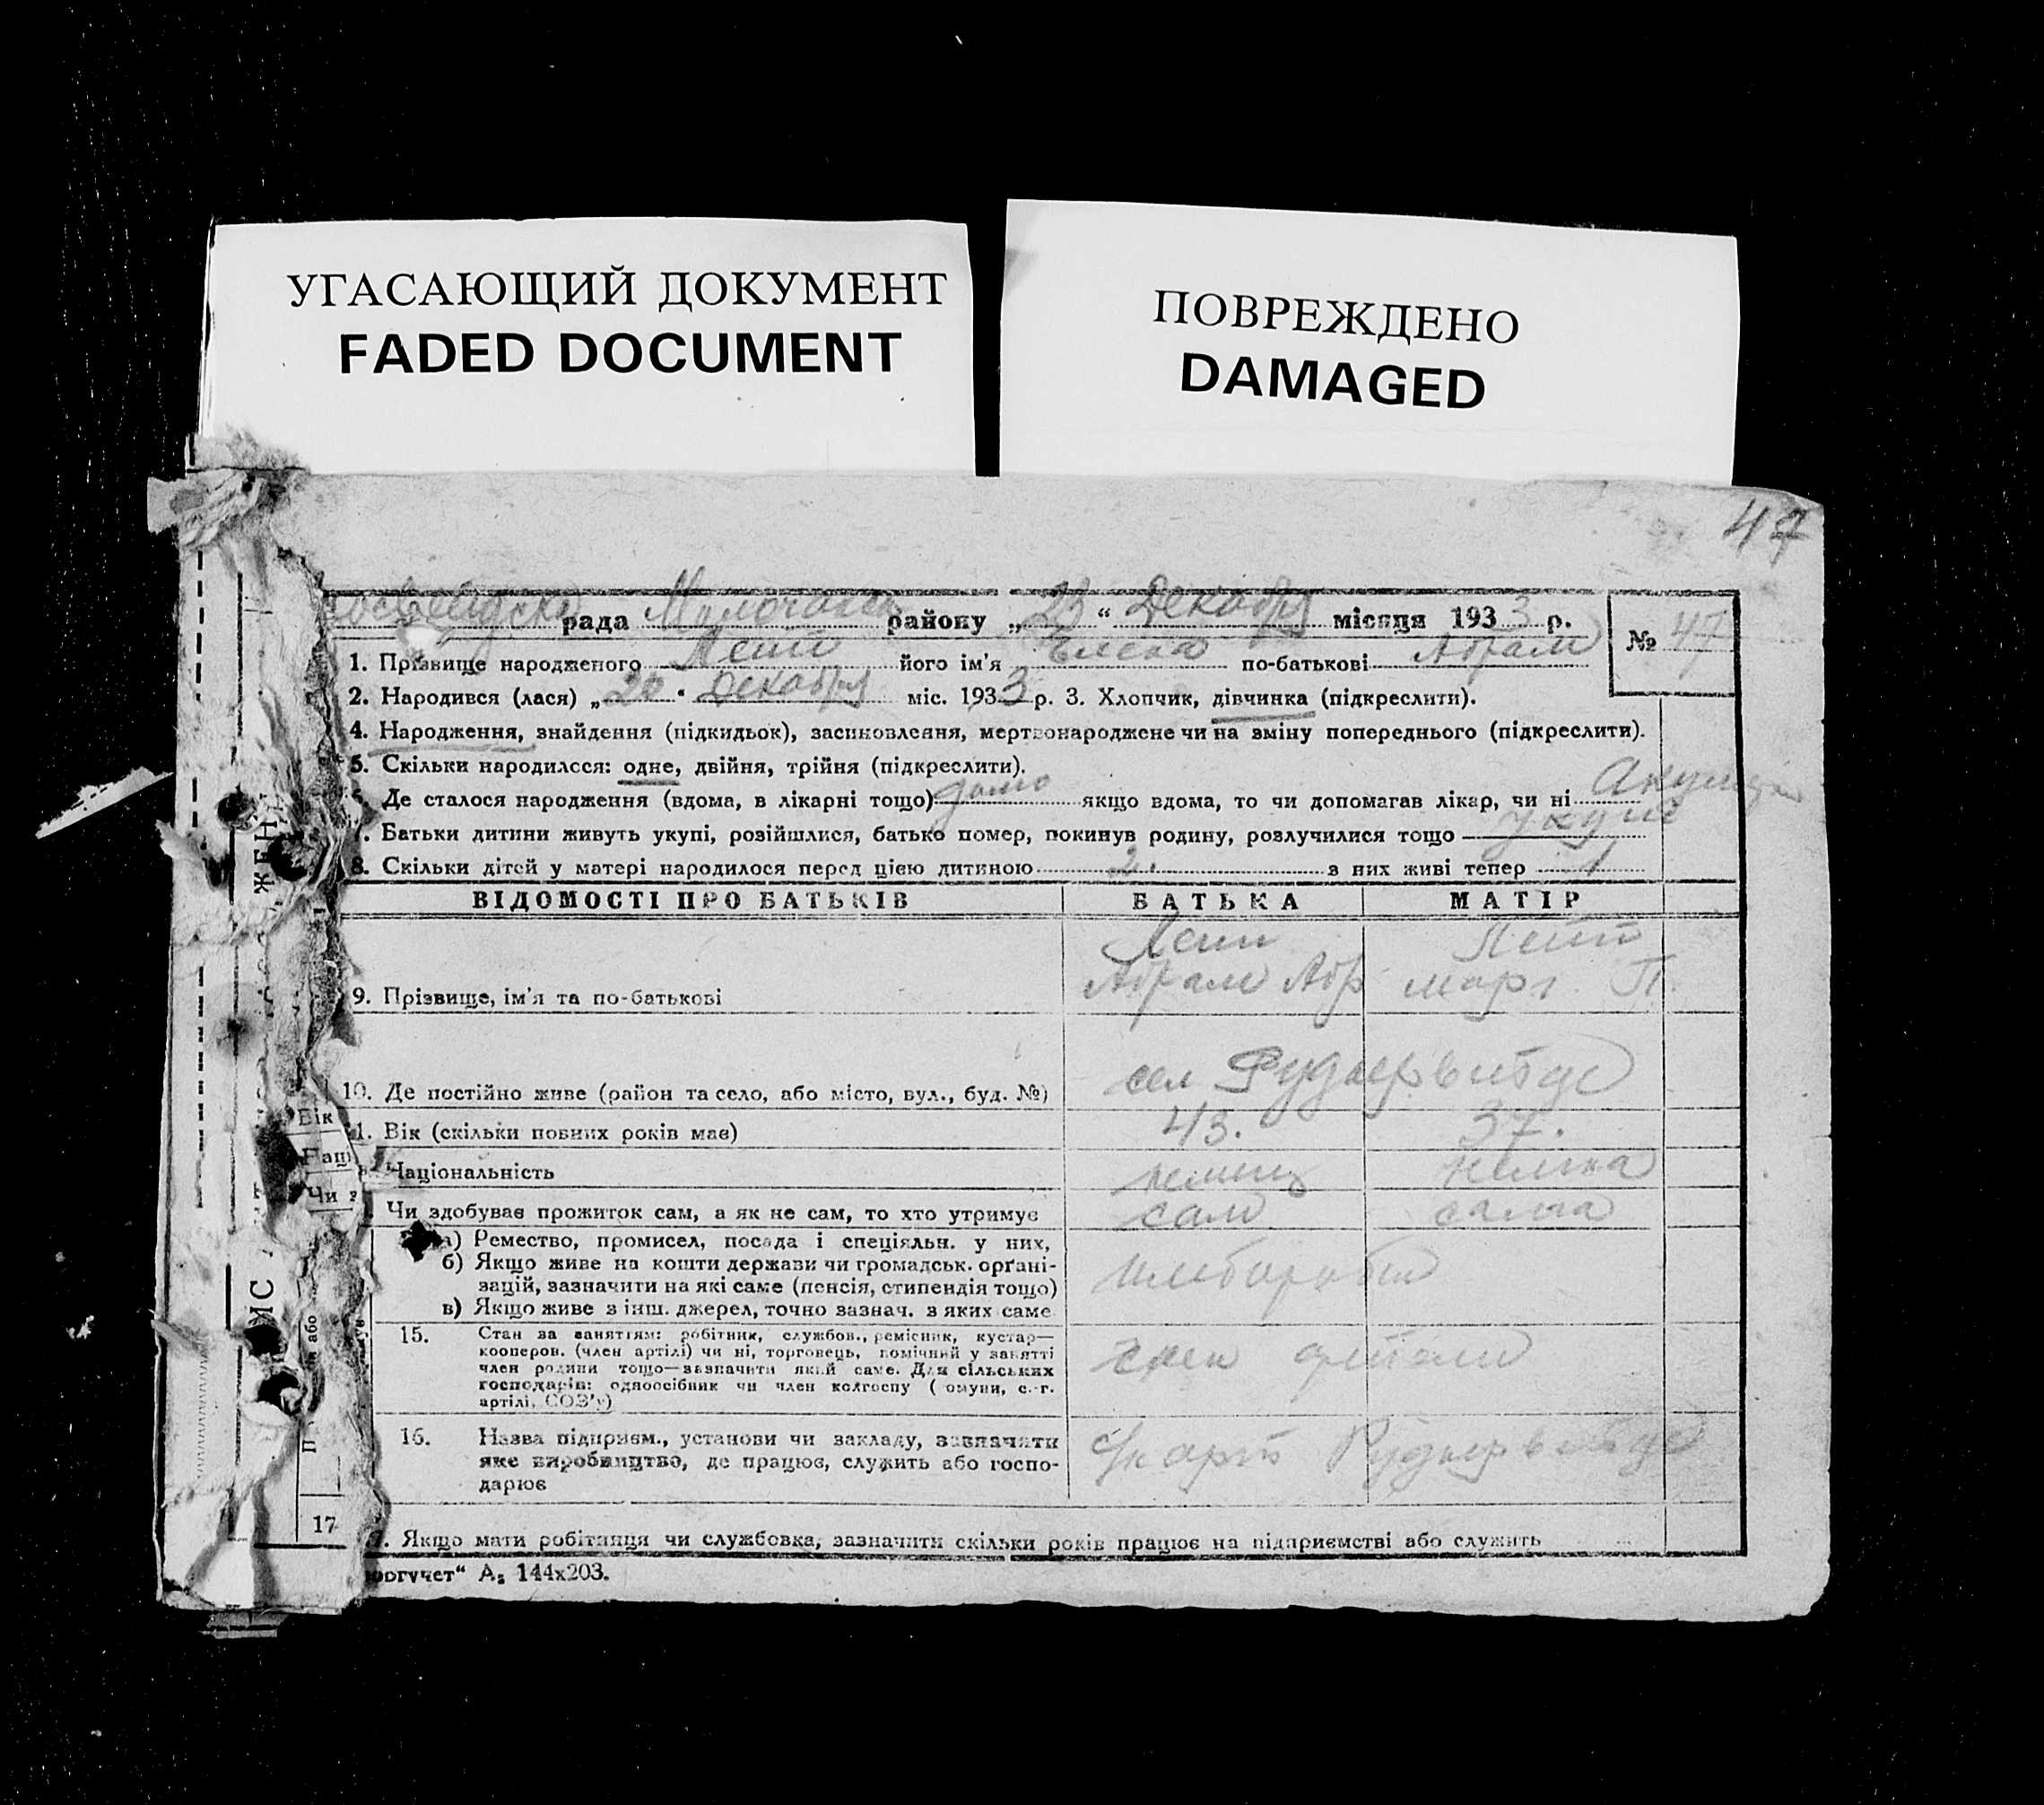 УГАСАЮЩИЙ ДОКУМЕНТ
FADED DOCUMENT
ПОВРЕЖДЕНО
DAMAGED
47
рада района району „23“ Декабря місяця 1933 р.
№ 47
1. Прізвище народженого його ім'я Елена по-батькові Абрам
2. Народився (лася) „20“ Декабря міс. 1933 р. 3. Хлопчик, дівчинка (підкреслити).
4. Народження, знайдення (підкидьок), засиновлення, мертвонароджене чи на зміну попереднього (підкреслити).
5. Скільки народилося: одне, двійня, трійня (підкреслити).
Де сталося народження (вдома, в лікарні тощо) дома якщо вдома, то чи допомагав лікар, чи ні
7. Батьки дитини живуть укупі, розійшлися, батько помер, покинув родину, розлучилися тощо укупі
8. Скільки дітей у матері народилося перед цією дитиною 2. з них живі тепер 1
ВІДОМОСТІ ПРО БАТЬКІВ БАТЬКА МАТІР
9. Прізвище, ім'я та по-батькові Абрам Абр Марг. П.
10. Де постійно живе (район та село, або місто, вул., буд. №) сел
Вік
1. Вік (скільки повних років має) 43. 37.
Наці
Національність немец немка
Чи з
Чи здобуває прожиток сам, а як не сам, то хто утримує сам сама
а) Ремество, промисел, посада і спеціяльн. у них,
б) Якщо живе на кошти держави чи громадськ. орґані-
зацій, зазначити на які саме (пенсія, стипендія тощо)
в) Якщо живе з інш. джерел, точно зазнач. з яких саме
15. Стан за заняттям: робітник, службов., ремісник, кустар—
кооперов. (член артілі) чи ні, торговець, помічний у занятті
член родини тощо—зазначити який саме. Для сільських
господарів: одноосібник чи член колгоспу ( омуни, с.-г.
артілі, СОЗ'у)
член артели
16. Назва підприєм., установи чи закладу, зазначити
яке виробництво, де працює, служить або госпо-
дарює
17
7. Якщо мати робітниця чи службовка, зазначити скільки років працює на підприємстві або служить
оргучет“ А₅ 144х203.